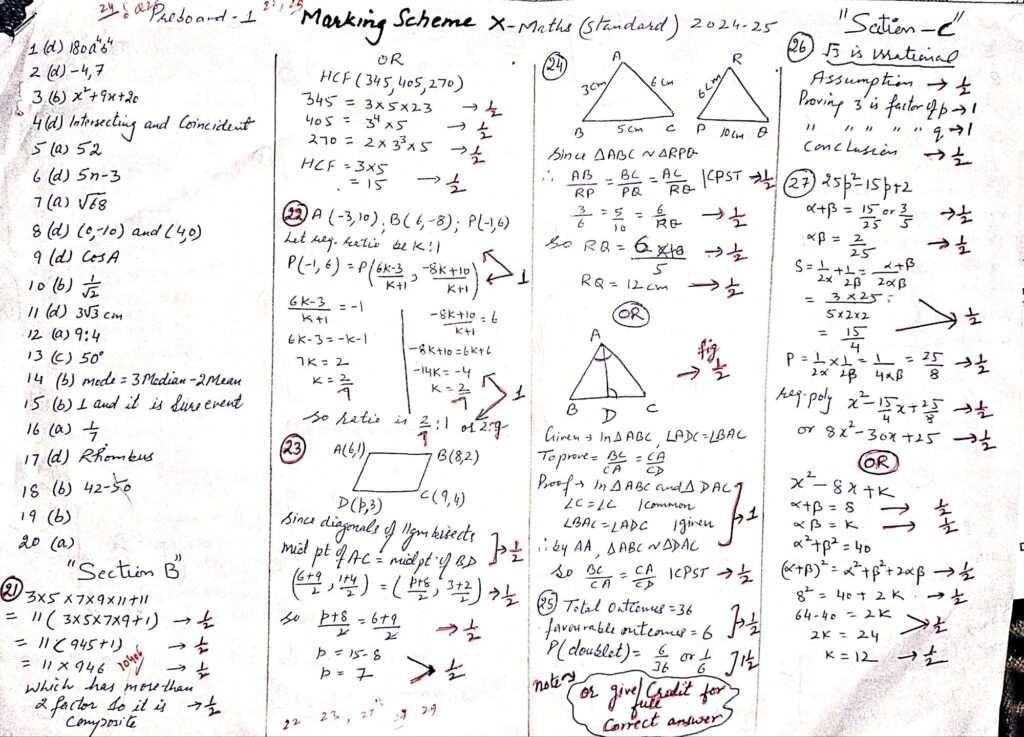 Preboard-1
Marking Scheme X-Maths (Standard) 2024-25
1 (d) 180a⁴b⁴
2 (d) -4,7
3 (b) x²+9x+20
4 (d) Intersecting and Coincident
5 (a) 52
6 (d) 5n-3
7 (a) √68
8 (d) (0,-10) and (4,0)
9 (d) Cos A
10 (b) 1/√2
11 (d) 3√3 cm
12 (a) 9:4
13 (c) 50°
14 (b) mode = 3 Median - 2 Mean
15 (b) 1 and it is Sure event
16 (a) 1/7
17 (d) Rhombus
18 (b) 42-50
19 (b)
20 (a)
"Section B"
21 3x5x7x9x11+11
= 11(3x5x7x9+1) → 1/2
= 11(945+1) → 1/2
= 11x946 10406 → 1/2
which has more than
2 factor so it is → 1/2
Composite
OR
HCF (345, 405, 270)
345 = 3x5x23 → 1/2
405 = 3⁴x5 → 1/2
270 = 2x3³x5 → 1/2
HCF = 3x5
= 15 → 1/2
22 A(-3,10), B(6,-8); P(-1,6)
Let req. ratio be K:1
P(-1,6) = P(6K-3/K+1, -8K+10/K+1) 1
6K-3/K+1 = -1
6K-3 = -K-1
7K = 2
K = 2/7
-8K+10/K+1 = 6
-8K+10 = 6K+6
-14K = -4
K = 2/7 1
So ratio is 2/7 : 1 or
23
A(6,1) B(8,2)
D(P,3) C(9,4)
Since diagonals of llgm bisects
Mid pt of AC = mid pt. of BD → 1/2
(6+9/2, 1+4/2) = (p+8/2, 3+2/2) → 1/2
So p+8/2 = 6+9/2 → 1/2
p = 15-8
p = 7 → 1/2
22 23, 27 29
24
A R
3cm 6cm 6cm
B 5cm C P 10cm Q
Since ΔABC ~ ΔRPQ
∴ AB/RP = BC/PQ = AC/RQ |CPST → 1/2
3/6 = 5/10 = 6/RQ → 1/2
So RQ = 6x10/5 → 1/2
RQ = 12cm → 1/2
OR
A
B D C
fig
→ 1/2
Given → In ΔABC, ∠ADC = ∠BAC
To prove = BC/CA = CA/CD
Proof → In ΔABC and ΔDAC
∠C = ∠C |Common
∠BAC = ∠ADC |given → 1
∴ by AA, ΔABC ~ ΔDAC
So BC/CA = CA/CD |CPST → 1/2
25 Total Outcomes = 36
favourable outcomes = 6 → 1/2
P(doublet) = 6/36 or 1/6 ] 1 1/2
note →
or give Credit for
full
Correct answer
"Section-C"
26 √3 is irrational
Assumption → 1/2
Proving 3 is factor of p → 1
" " " " " q → 1
Conclusion → 1/2
27 25p²-15p+2
α+β = 15/25 or 3/5 → 1/2
αβ = 2/25 → 1/2
S = 1/2α + 1/2β = α+β/2αβ
= 3x25/5x2x2
= 15/4 → 1/2
P = 1/2α x 1/2β = 1/4αβ = 25/8 → 1/2
Req. poly x² - 15/4 x + 25/8 → 1/2
or 8x²-30x+25 → 1/2
OR
x²-8x+K
α+β = 8 → 1/2
αβ = K → 1/2
α²+β² = 40
(α+β)² = α²+β²+2αβ → 1/2
8² = 40+2K → 1/2
64-40 = 2K
2K = 24 → 1/2
K = 12 → 1/2